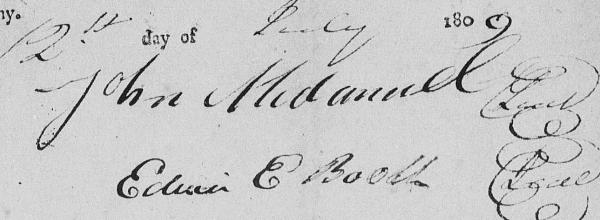 ny.
12th day of July 1809
John Mcdanuel Seal
Edwin E Booth Seal